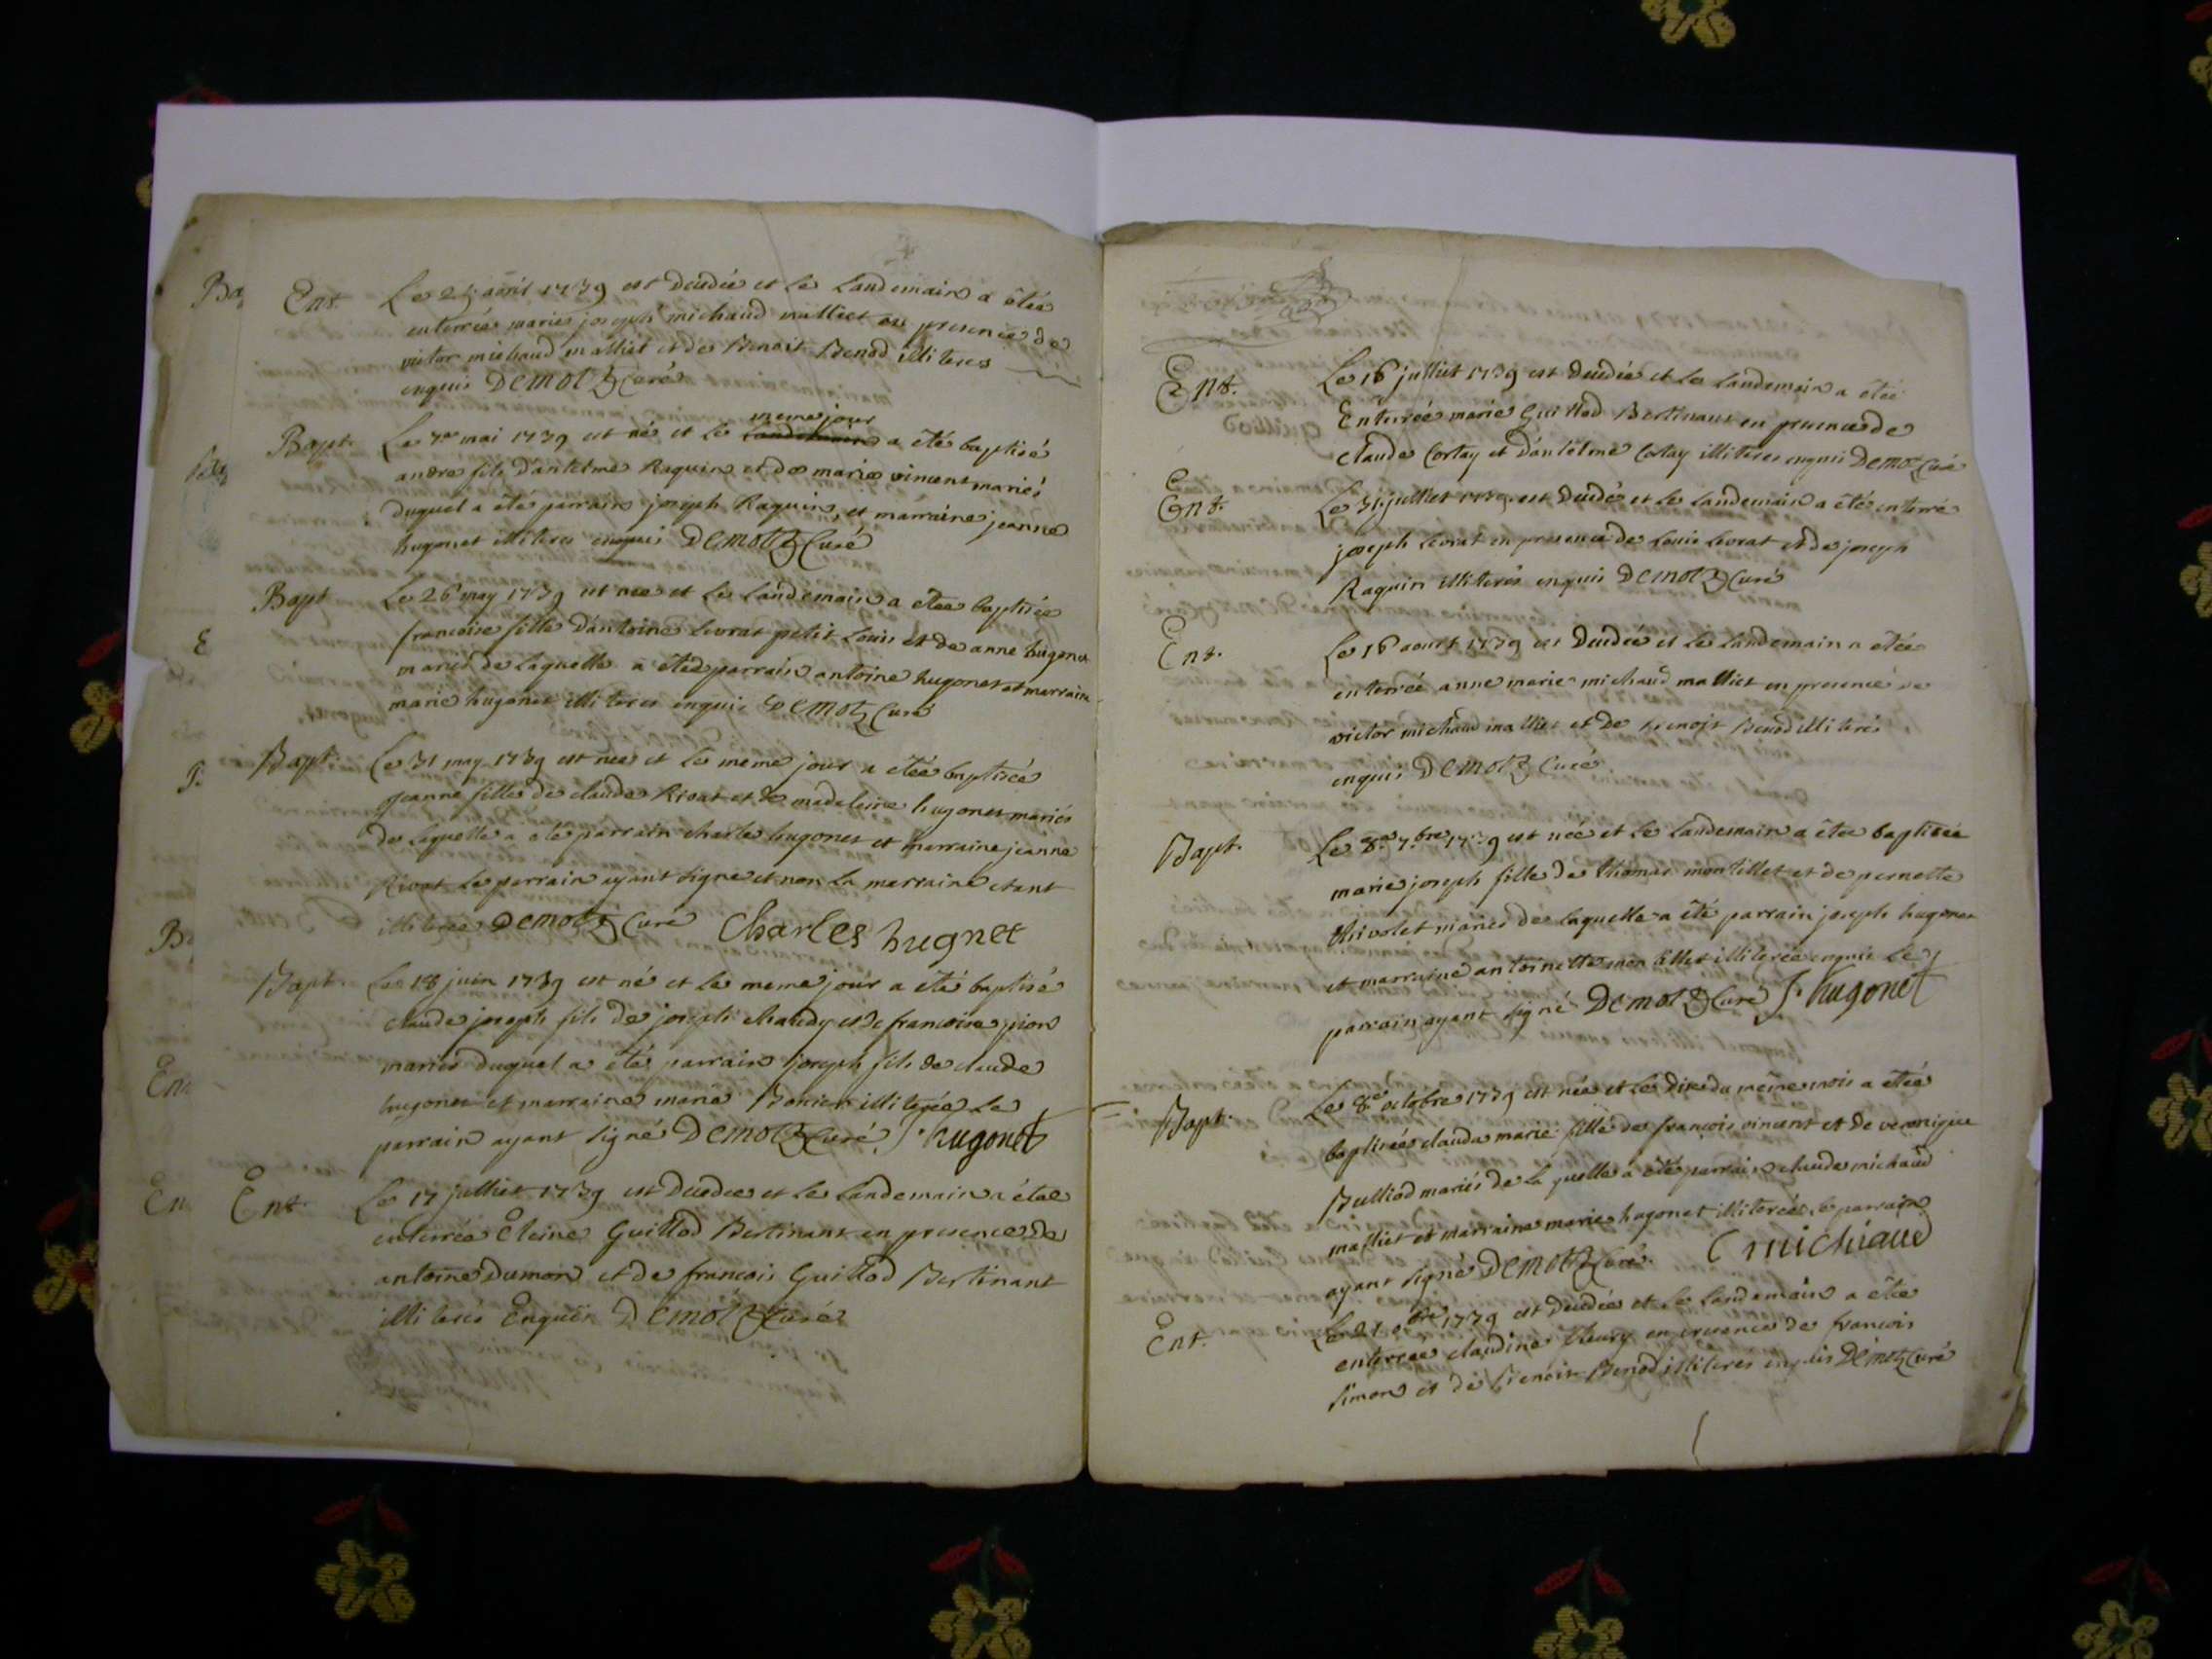 Ent. Le 24 avril 1739 est decedée et le Landemain a étée
enterrée marie joseph michaud malliet en presence de
victor michaud malliet et de Benoit Benod illiteres
enquis Demotz Curé
meme jour
Bapt. Le 7e mai 1739 est né et le Landemain a été baptisé
andre fils d'antelme Raquin et de marie vincent mariés
duquel a été parrain joseph Raquin, et marraine jeanne
hugonet illiteres enquis Demotz Curé
Bapt Le 26 may 1739 est nee et le Landemain a étee baptisée
francoise fille d'antoine Livrat petit Louis et de anne hugonet
mariés de laquelle a étee parrain antoine hugonet et marraine
marie hugonet illiteres enquis Demotz Curé
Bapt. Le 31 may 1739 est nee et le meme jour a étée baptisée
jeanne fille de claude Rivat et de madeleine hugonet mariés
de laquelle a été parrain charle hugonet et marraine jeanne
Rivat le parrain ayant signe et non la marraine etant
illiterée Demotz Curé Charles hugnet
Bapt. Le 18 juin 1739 est né et le meme jour a été baptisé
claude joseph fils de joseph chaudy et de francoise pion
mariés duquel a été parrain joseph fils de claude
hugonet et marraine marie illiterée le
parrain ayant signé Demotz Curé J. hugonet
Ent. Le 17 julliet 1739 est decedee et le Landemain a étée
enterrée Eleine Guillod Bertinant en presence de
antoine dumon et de francois Guillod Bertinant
illiterés Enquis Demotz Curé
Ent. Le 16 julliet 1739 est decedée et le landemain a étée
Enterrée marie Guillod Bertinant en presence de
claude Cortay et d'antelme Cortay illiteres enquis Demotz Curé
Ent. Le 31 julliet 1739 est decedé et le landemain a été enterré
joseph Livrat en presence de Louis Livrat et de joseph
Raquin illiterés enquis Demotz Curé
Ent. Le 16 aoust 1739 est decedée et le landemain a étée
enterrée anne marie michaud malliet en presence de
victor michaud malliet et de Benoit Benod illiterés
enquis Demotz Curé
Bapt. Le 8e 7bre 1739 est née et le landemain a étée baptisée
marie joseph fille de thomas montillet et de pernette
mariés de laquelle a été parrain joseph hugonet
et marraine antoinette montillet illiterée enquise le
parrain ayant signé Demotz Curé J. hugonet
Bapt. Le 8e octobre 1739 est née et le dixe du même mois a étée
baptisée clauda marie fille de francois vincent et de veronique
Bulliod mariés de la quelle a été parrain claude michaud
malliet et marraine marie hugonet illiterée le parrain
ayant signé Demotz Curé C michaud
Ent. Le 21 1739 est decedée et le landemain a étée
enterrée claudine fleury en presence de francois
simon et de Benoit Benod illiterés enquis Demotz Curé